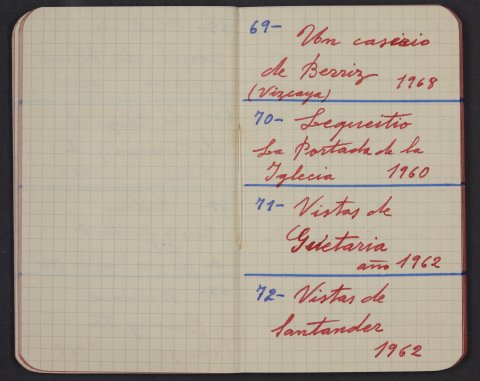 69- Un caserio
de Berriz
(Vizcaya) 1968
70- Lequeitio
La Portada de la
Iglecia 1960
71- Vistas de
Guetaria
año 1962
72- Vistas de
Santander
1962